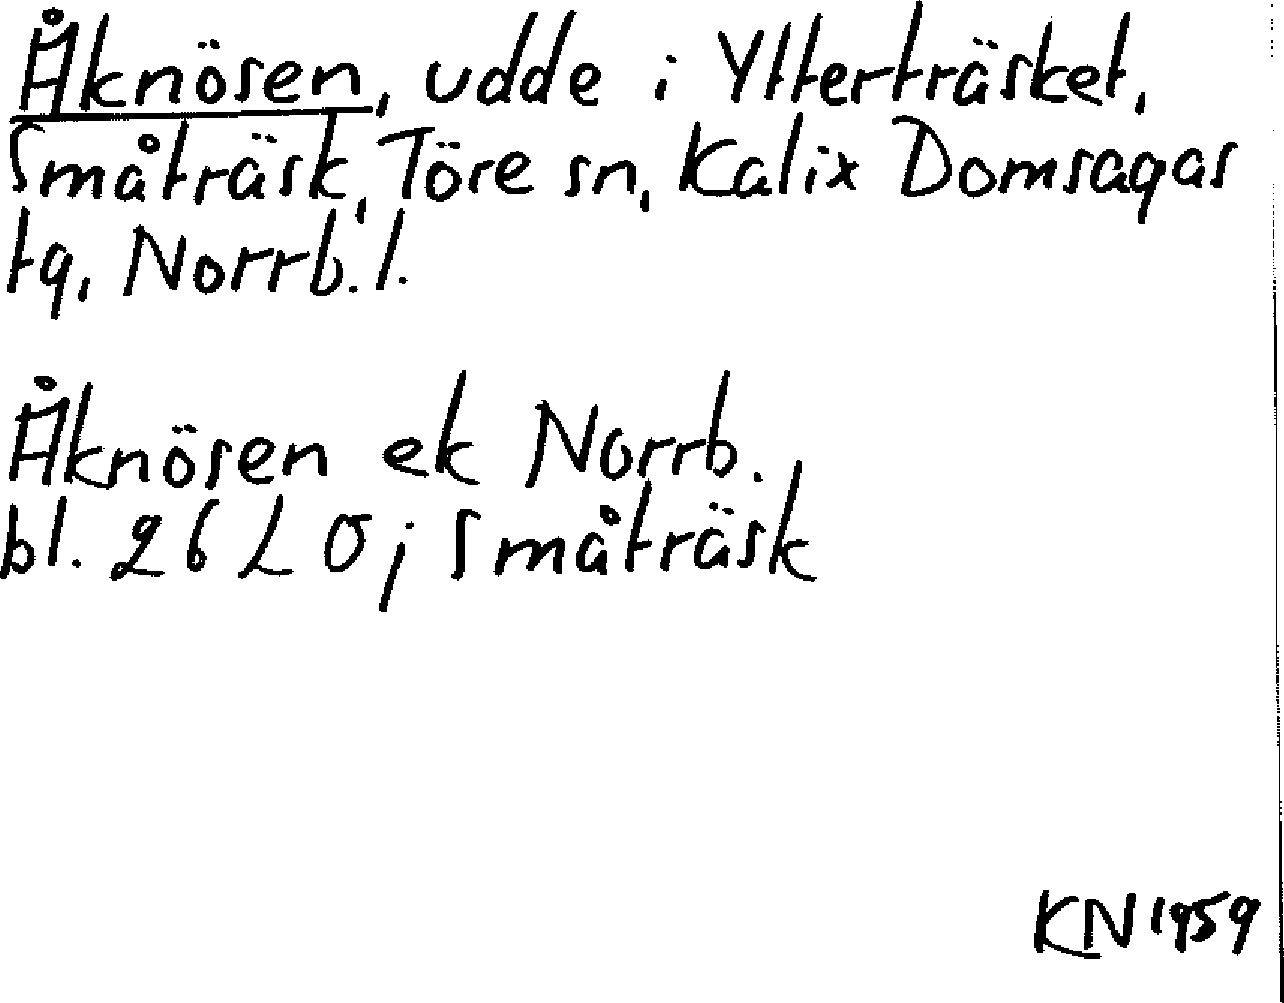 Åknösen, udde i Ytterträsket,
Småträsk, Töre sn, Kalix Domsagas
tg, Norrb. l.
Åknösen ek Norrb.
bl. 26 L O; Småträsk
KN 1959